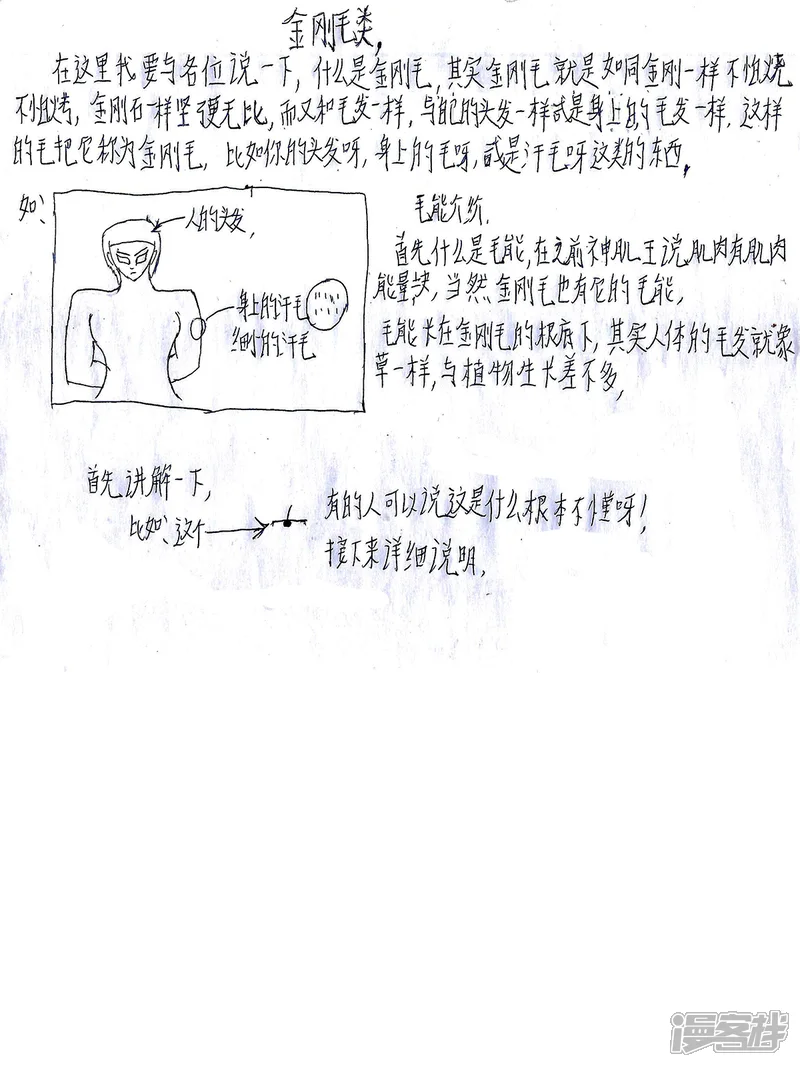 金刚毛类,
在这里我要与各位说一下,什么是金刚毛,其实金刚毛就是如同金刚一样不怕烧
不怕烤,金刚石一样坚硬无比,而又和毛发一样,与的头发一样或是身上的毛发一样,这样
的毛把它称为金刚毛,比如你的头发呀,身上的毛呀,或是汗毛呀这类的东西,
如:
人的头发,
身上的汗毛
细小的汗毛
毛能介绍,
首先什么是毛能,在之前神肌王说肌肉有肌肉
能量块,当然金刚毛也有它的毛能,
毛能长在金刚毛的根底下,其实人体的毛发就象
草一样,与植物生长差不多,
首先讲解一下,
比如:这个
有的人可以说这是什么根本不懂呀!
接下来详细说明,
漫客栈